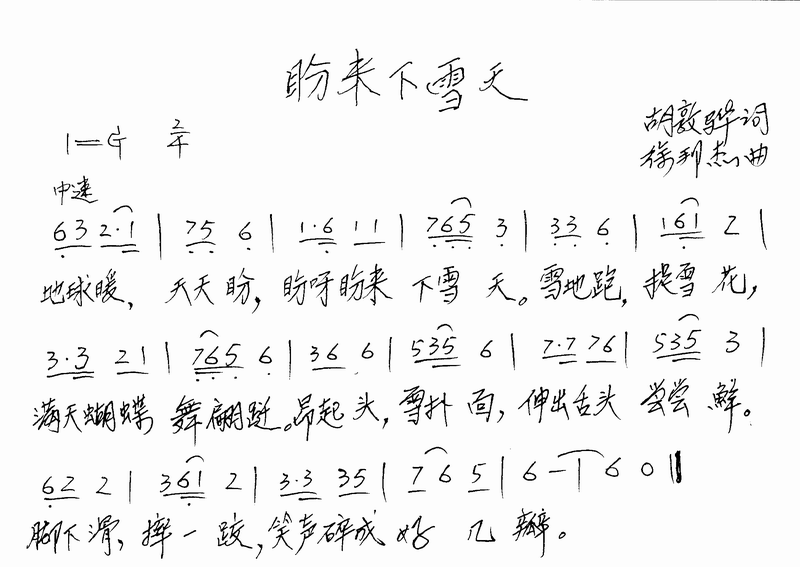 盼来下雪天
1=G 2/4
胡敦骅词
徐邦杰曲
中速
6 3 2·1 | 7 5 6 | 1·6 1 1 | 7 6 5 3 | 3 3 6 | 1 6 1 2 |
地球暖，天天盼，盼呀盼来下雪天。雪地跑，捉雪花，
3·3 2 1 | 7 6 5 6 | 3 6 6 | 5 3 5 6 | 7·7 7 6 | 5 3 5 3 |
满天蝴蝶舞翩跹。昂起头，雪扑面，伸出舌头尝尝鲜。
6 2 2 | 3 6 1 2 | 3·3 3 5 | 7 6 5 | 6 - | 6 0 ‖
脚下滑，摔一跤，笑声碎成好几瓣。